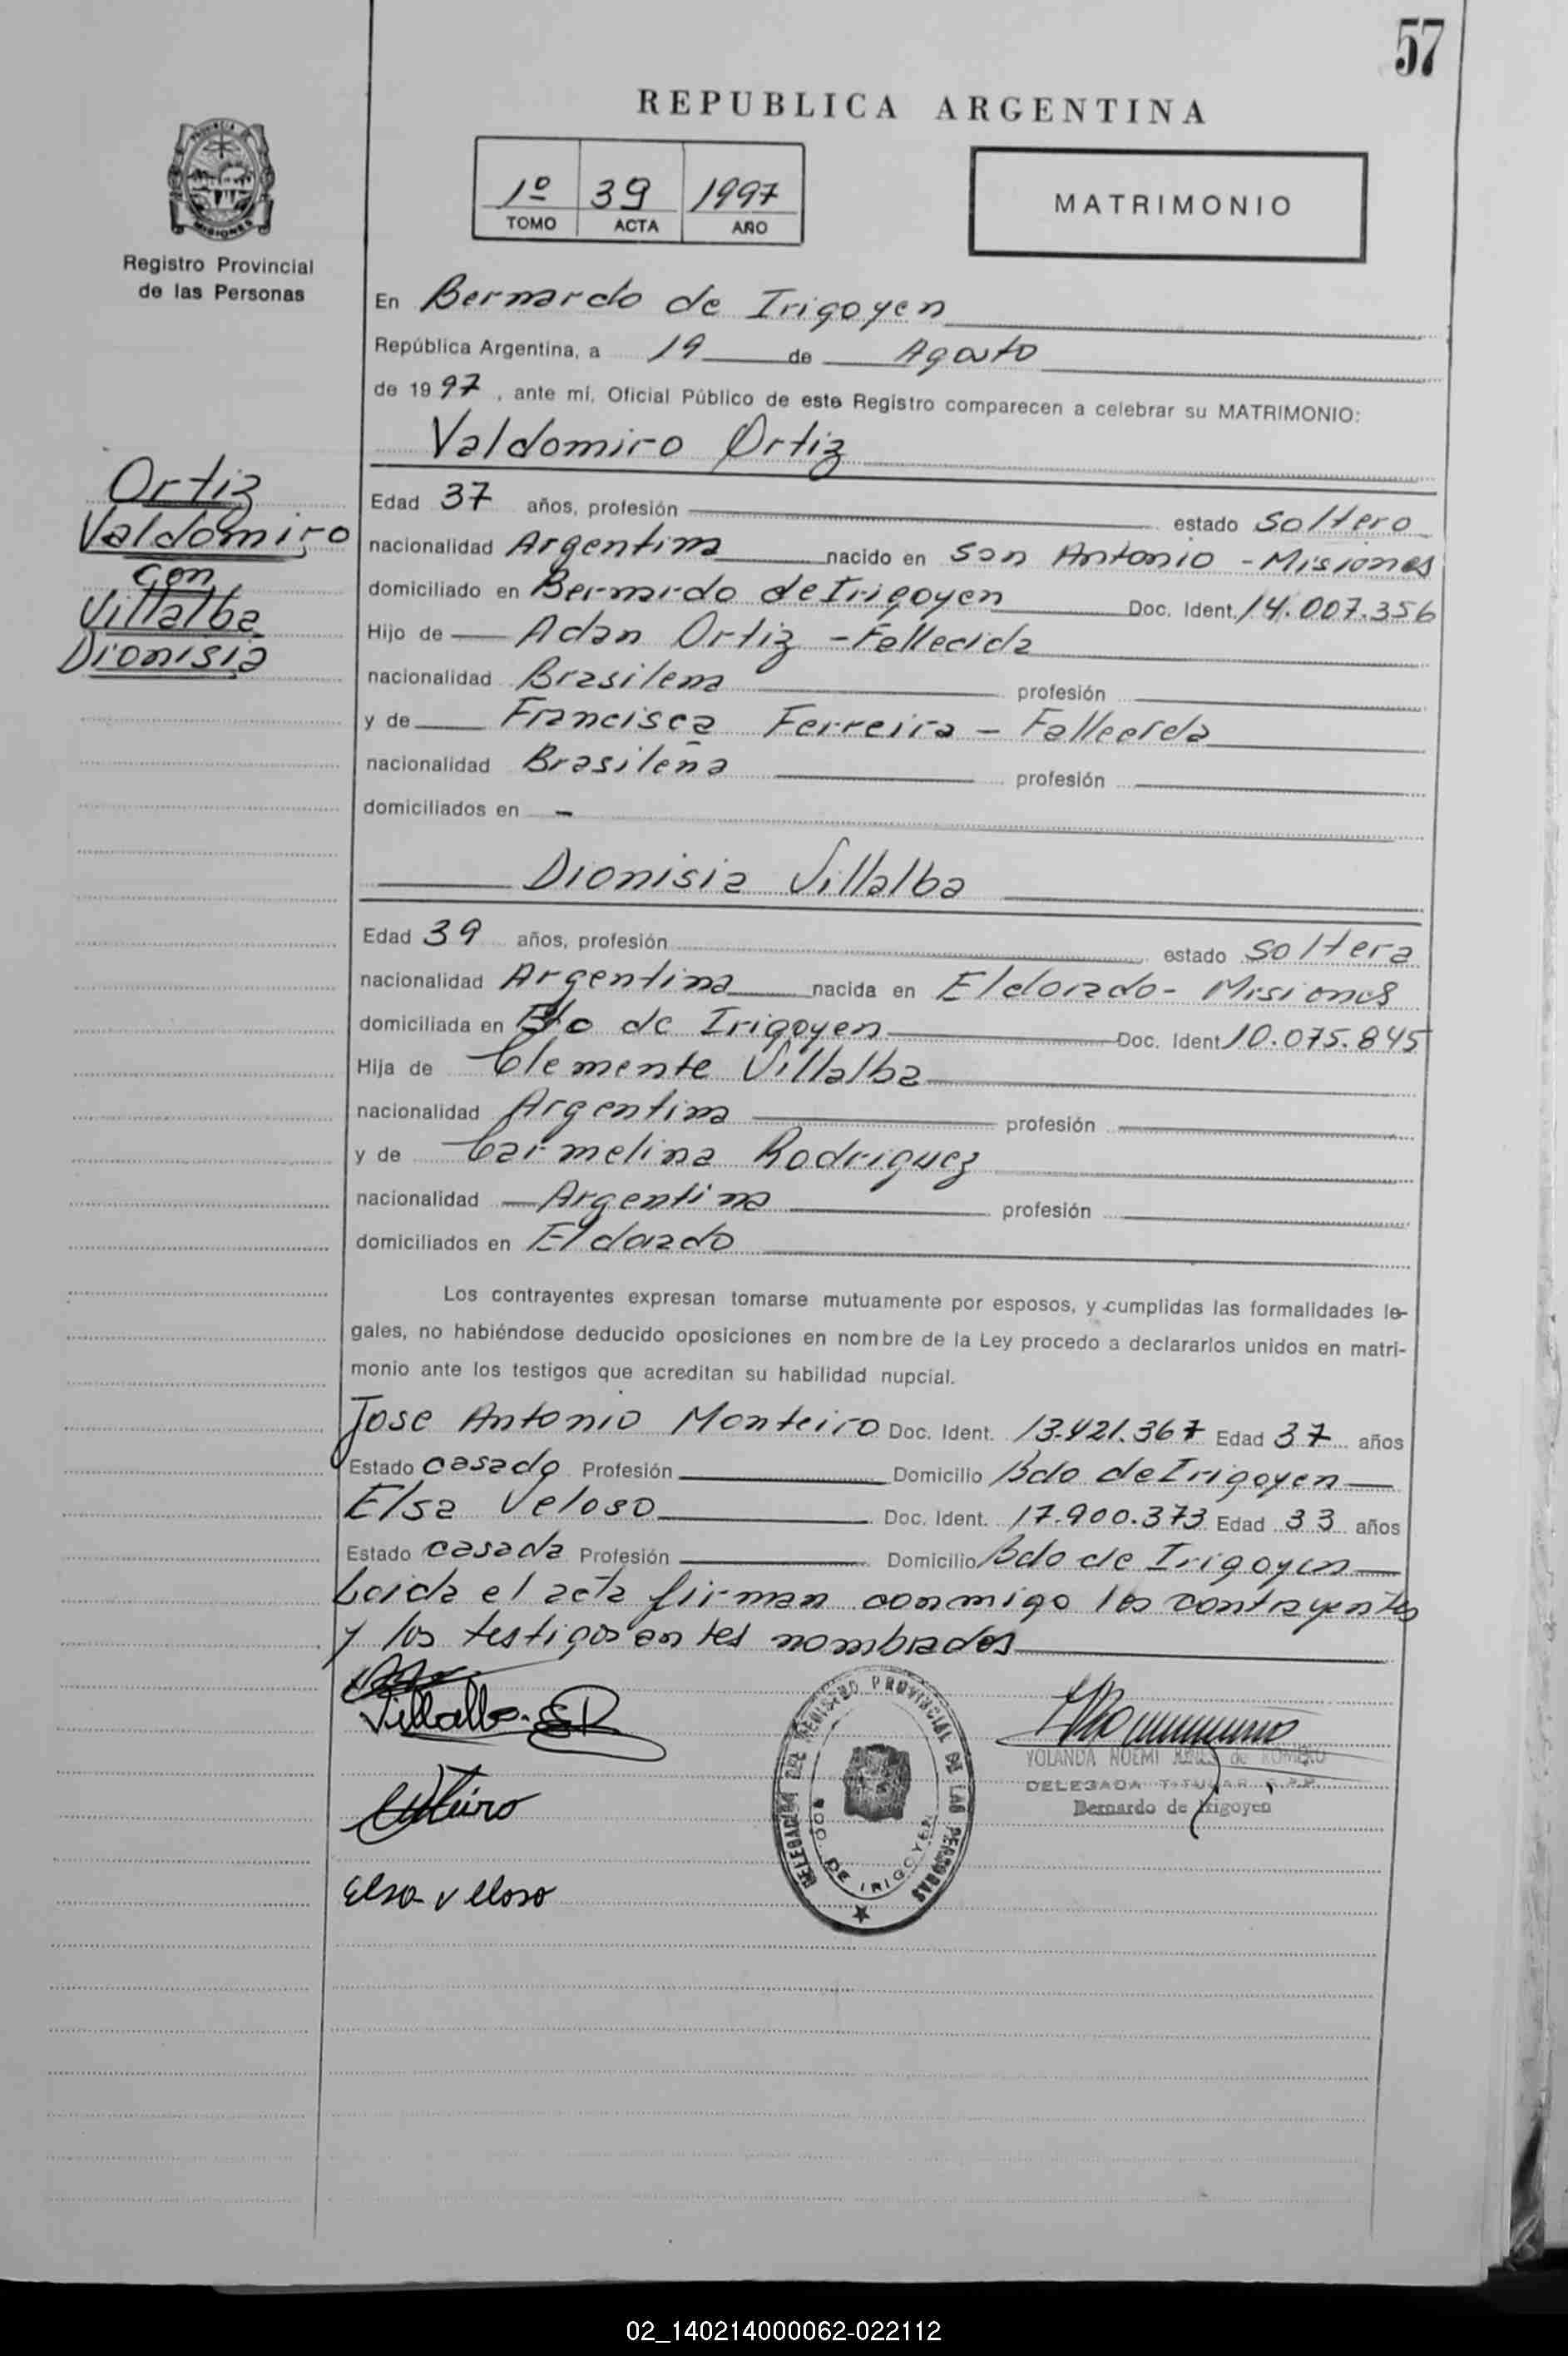 57
REPUBLICA ARGENTINA
1º 39 1997
TOMO ACTA AÑO
MATRIMONIO
PROVINCIA DE
MISIONES
Registro Provincial
de las Personas
En Bernardo de Irigoyen
República Argentina, a 19 de Agosto
de 1997, ante mí, Oficial Público de este Registro comparecen a celebrar su MATRIMONIO:
Valdomiro Ortiz
Ortiz
Valdomiro
con
Villalba
Dionisia
Edad 37 años, profesión estado soltero
nacionalidad Argentina nacido en San Antonio - Misiones
domiciliado en Bernardo de Irigoyen Doc. Ident. 14.007.356
Hijo de Adan Ortiz - Fallecida
nacionalidad Brasilena profesión
y de Francisca Ferreira - Fallecida
nacionalidad Brasileña profesión
domiciliados en -
Dionisia Villalba
Edad 39 años, profesión estado soltera
nacionalidad Argentina nacida en Eldorado - Misiones
domiciliada en de Irigoyen Doc. Ident 10.075.845
Hija de Clemente Villalba
nacionalidad Argentina profesión
y de Carmelina Rodriguez
nacionalidad Argentina profesión
domiciliados en Eldorado
Los contrayentes expresan tomarse mutuamente por esposos, y cumplidas las formalidades le-
gales, no habiéndose deducido oposiciones en nombre de la Ley procedo a declararlos unidos en matri-
monio ante los testigos que acreditan su habilidad nupcial.
Jose Antonio Monteiro Doc. Ident. 13.421.367 Edad 37 años
Estado casado Profesión Domicilio Bdo de Irigoyen
Elsa Veloso Doc. Ident. 17.900.373 Edad 33 años
Estado casada Profesión Domicilio Bdo de Irigoyen
Leida el acta firman conmigo los contrayentes
y los testigos antes nombrados
Villalba
DELEGACION DEL REGISTRO PROVINCIAL DE LAS PERSONAS
BDO. DE IRIGOYEN
YOLANDA NOEMI de ROMERO
DELEGADA TITULAR R.P.P.
Bernardo de Irigoyen
Elsa veloso
02_140214000062-022112